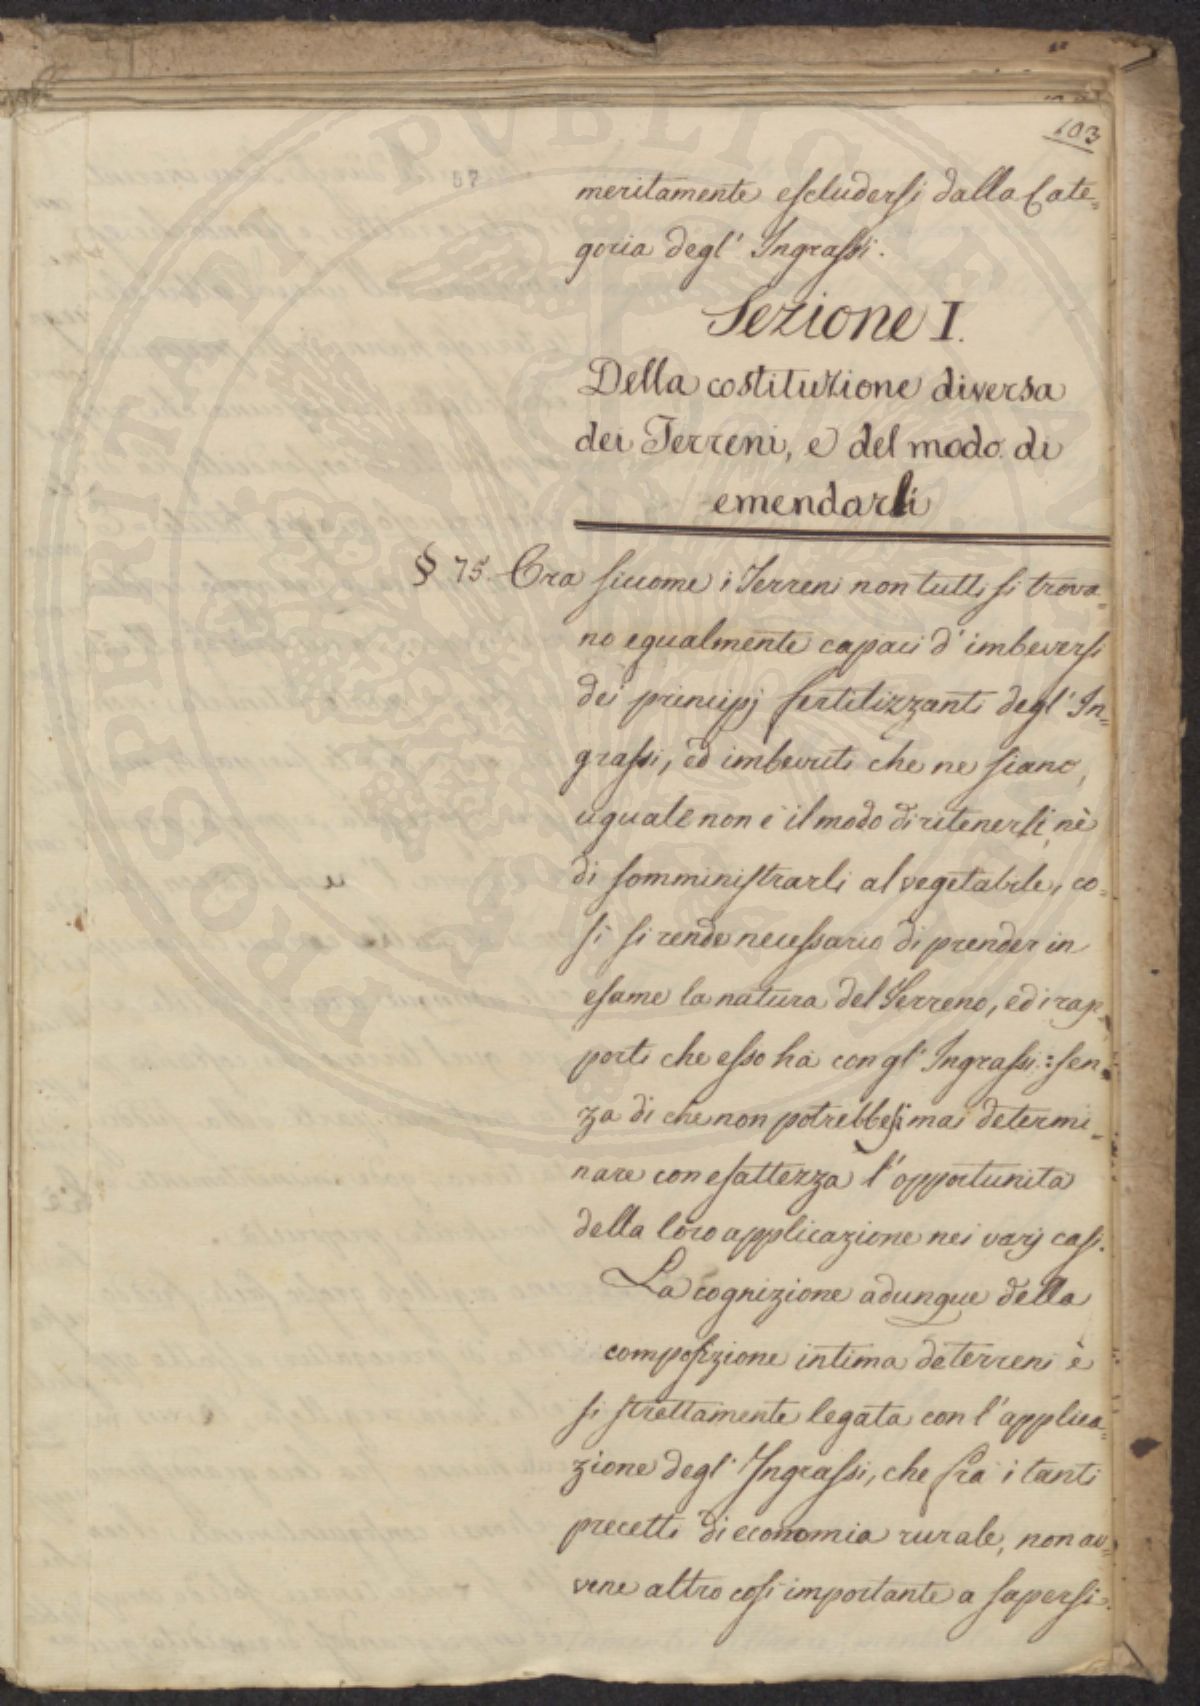 103
57
meritamente escludersi dalla Cate=
goria degl' Ingrassi.
Sezione I.
Della costituzione diversa
dei Terreni, e del modo di
emendarli
§ 75. Ora siccome i Terreni non tutti si trova=
no egualmente capaci d' imbeversi
dei principj fertilizzanti degl' In=
grassi, ed imbevuti che ne siano,
uguale non è il modo di ritenerli, nè
di somministrarli al vegetabile, co=
sì si rende necessario di prender in
esame la natura del Terreno, ed i rap=
porti che esso ha con gl' Ingrassi: sen=
za di che non potrebbesi mai determi=
nare con esattezza l' opportunità
della loro applicazione nei varj casi.
La cognizione adunque della
composizione intima de terreni è
sì strettamente legata con l' applica=
zione degl' Ingrassi, che fra i tanti
precetti di economia rurale, non av=
vene altro così importante a sapersi.
PUBLICAE
PROSPERITATI